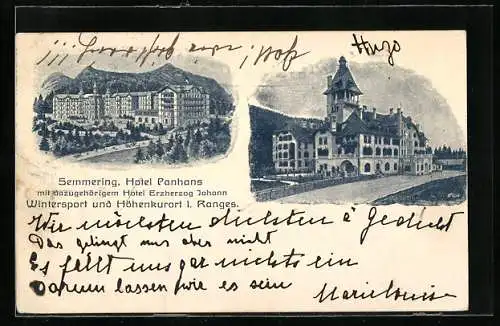 Hugo
Semmering, Hotel Panhans
mit dazugehörigem Hotel Erzherzog Johann
Wintersport und Höhenkurort I. Ranges.
Wir möchten dichten à Gedicht
Das gelingt uns aber nicht
Es fällt uns gar nichts ein
Darum lassen wir es sein
Marielouise